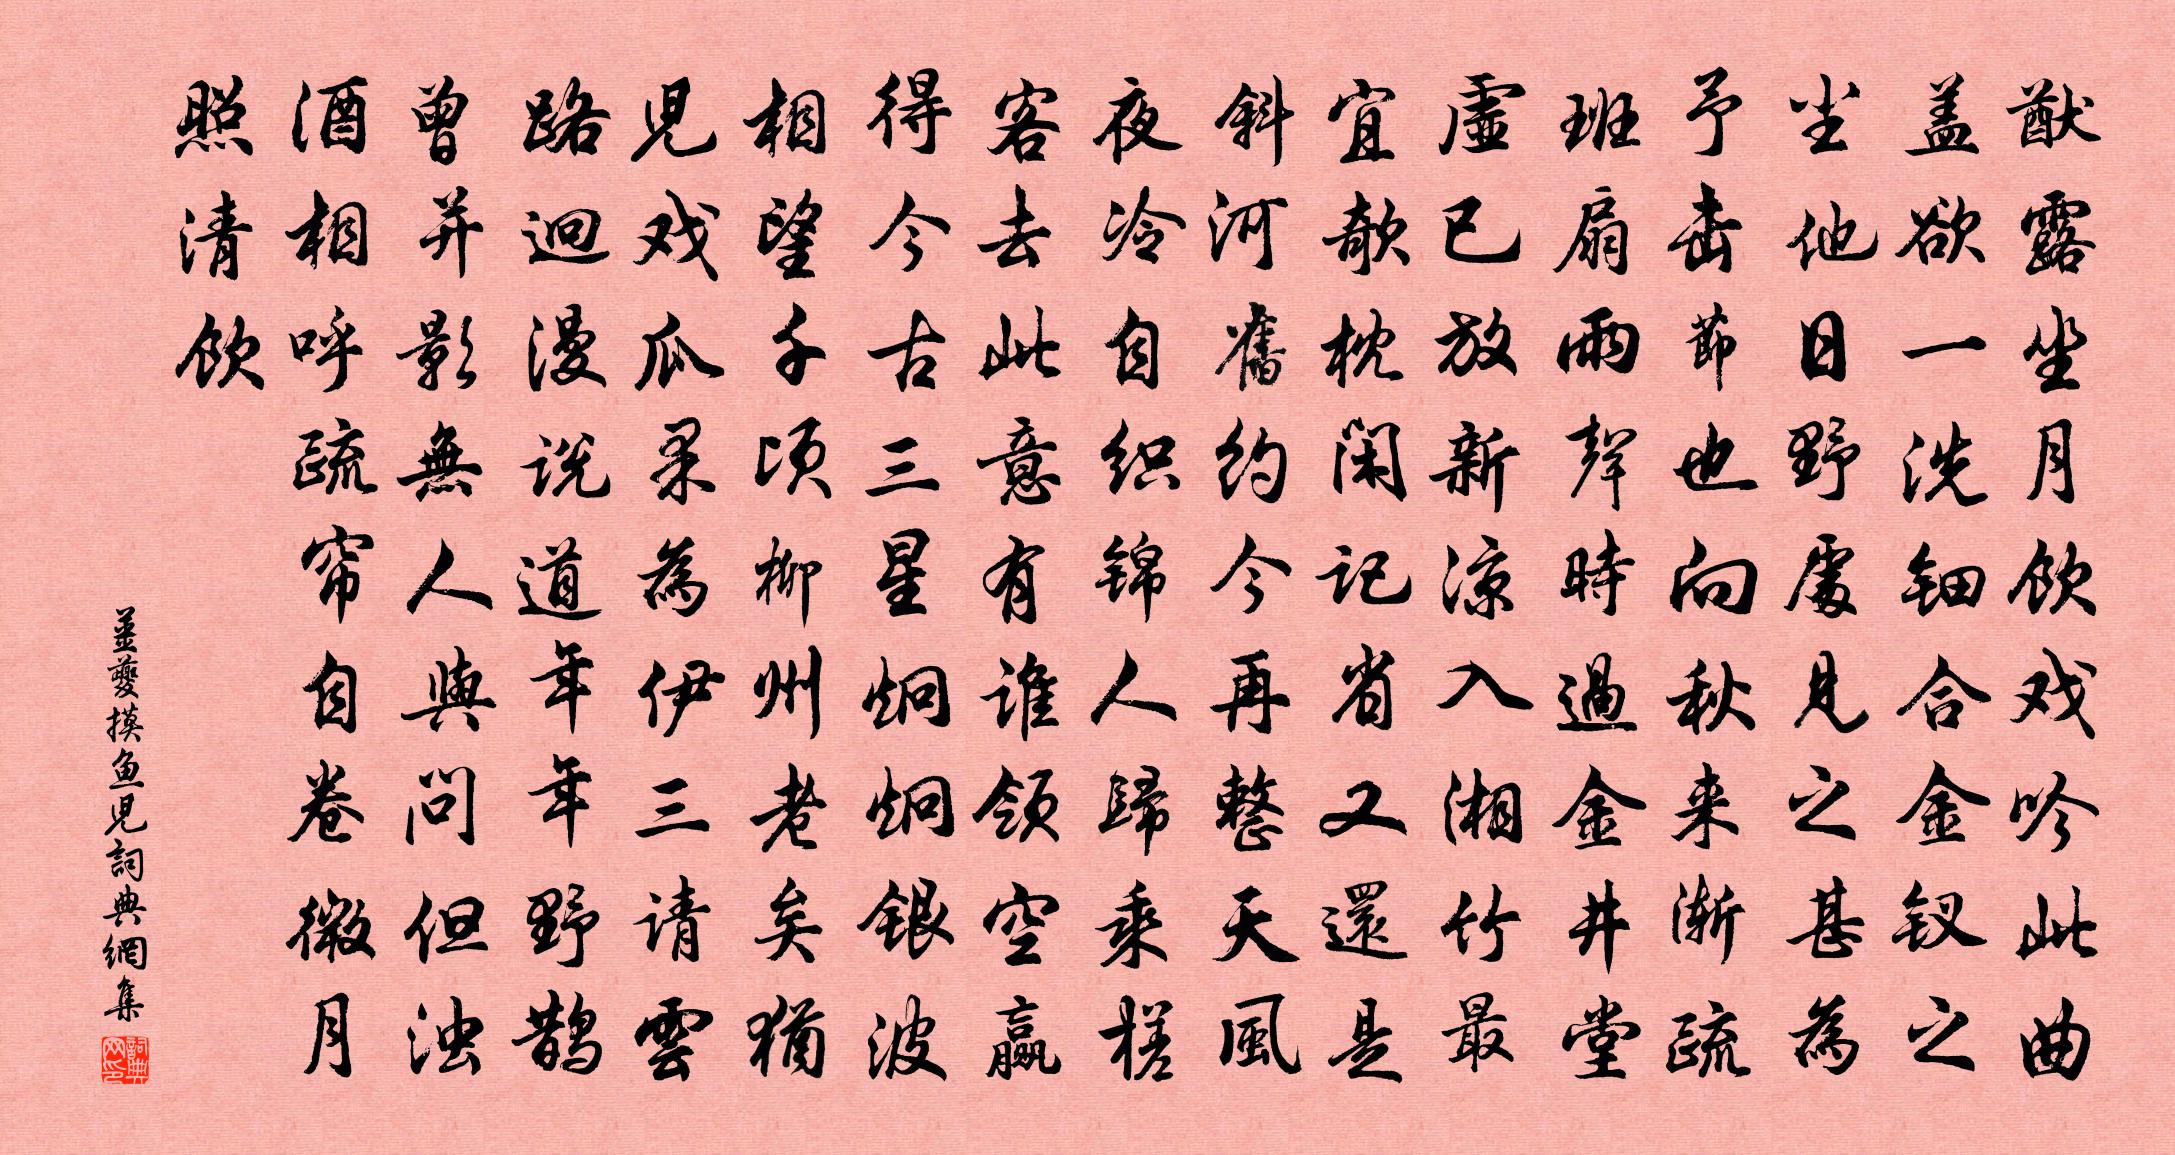 猷露坐月饮戏吟此曲
盖欲一洗钿合金钗之
尘他日野處见之甚為
予击節也向秋来渐疏
班扇雨声時過金井堂
虚已放新凉入湘竹最
宜欹枕闲记省又還是
斜河舊约今再整天風
夜冷自织锦人歸乘槎
客去此意有谁领空赢
得今古三星炯炯银波
相望千顷柳州老矣猶
児戏瓜果為伊三请雲
路迥漫说道年年野鹊
曾并影無人與問但浊
酒相呼疏帘自卷微月
照清饮
姜夔摸鱼児詞典網集
詞典网印